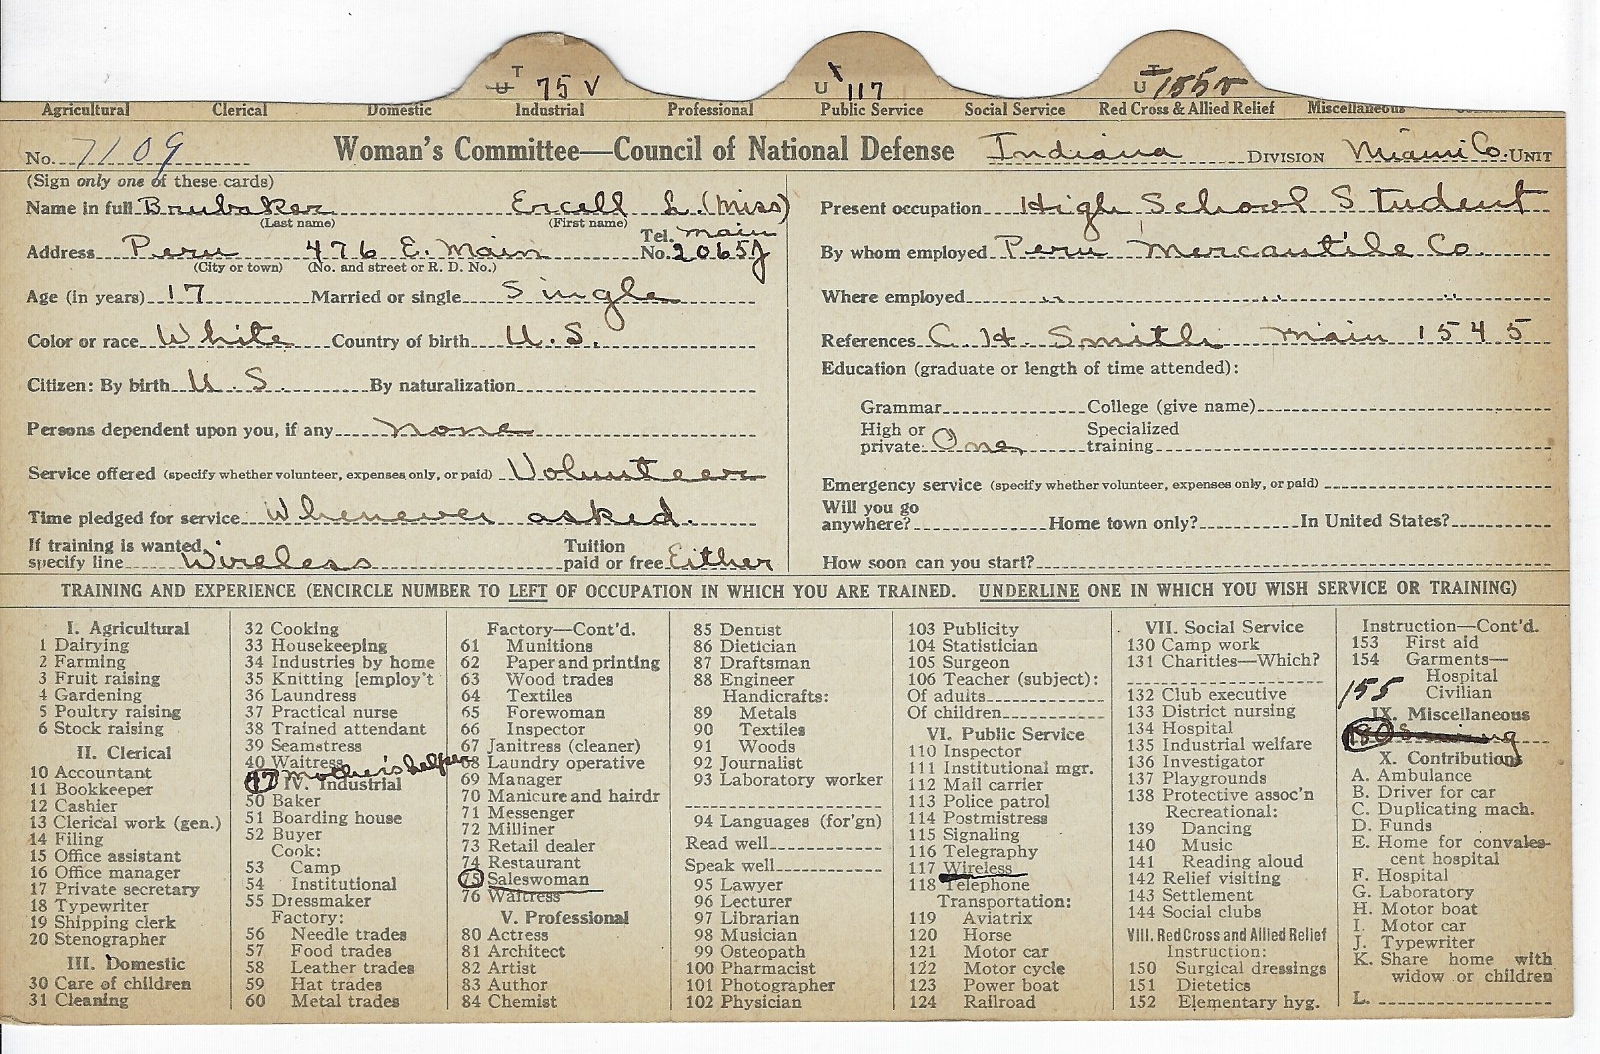 T T T
U 75 V U 117 U 155 v
Agricultural Clerical Domestic Industrial Professional Public Service Social Service Red Cross & Allied Relief Miscellaneous
No. 7109 Woman's Committee—Council of National Defense Indiana DIVISION Miami Co. UNIT
(Sign only one of these cards)
Name in full Brubaker Ercell L. (Miss)
(Last name) (First name)
Address Peru 476 E. Main Tel. No. Main 2065J
(City or town) (No. and street or R. D. No.)
Age (in years) 17 Married or single Single
Color or race White Country of birth U.S.
Citizen: By birth U.S. By naturalization
Persons dependent upon you, if any none
Service offered (specify whether volunteer, expenses only, or paid) Volunteer
Time pledged for service Whenever asked.
If training is wanted, Tuition
specify line Wireless paid or free Either
Present occupation High School Student
By whom employed Peru Mercantile Co.
Where employed " " "
References C. H. Smith Main 1545
Education (graduate or length of time attended):
Grammar College (give name)
High or Specialized
private One training
Emergency service (specify whether volunteer, expenses only, or paid)
Will you go
anywhere? Home town only? In United States?
How soon can you start?
TRAINING AND EXPERIENCE (ENCIRCLE NUMBER TO LEFT OF OCCUPATION IN WHICH YOU ARE TRAINED. UNDERLINE ONE IN WHICH YOU WISH SERVICE OR TRAINING)
I. Agricultural
1 Dairying
2 Farming
3 Fruit raising
4 Gardening
5 Poultry raising
6 Stock raising
II. Clerical
10 Accountant
11 Bookkeeper
12 Cashier
13 Clerical work (gen.)
14 Filing
15 Office assistant
16 Office manager
17 Private secretary
18 Typewriter
19 Shipping clerk
20 Stenographer
III. Domestic
30 Care of children
31 Cleaning
32 Cooking
33 Housekeeping
34 Industries by home
35 Knitting [employ't
36 Laundress
37 Practical nurse
38 Trained attendant
39 Seamstress
40 Waitress
47 Mother's helper
IV. Industrial
50 Baker
51 Boarding house
52 Buyer
Cook:
53 Camp
54 Institutional
55 Dressmaker
Factory:
56 Needle trades
57 Food trades
58 Leather trades
59 Hat trades
60 Metal trades
Factory—Cont'd.
61 Munitions
62 Paper and printing
63 Wood trades
64 Textiles
65 Forewoman
66 Inspector
67 Janitress (cleaner)
68 Laundry operative
69 Manager
70 Manicure and hairdr
71 Messenger
72 Milliner
73 Retail dealer
74 Restaurant
75 Saleswoman
76 Waitress
V. Professional
80 Actress
81 Architect
82 Artist
83 Author
84 Chemist
85 Dentist
86 Dietician
87 Draftsman
88 Engineer
Handicrafts:
89 Metals
90 Textiles
91 Woods
92 Journalist
93 Laboratory worker
94 Languages (for'gn)
Read well
Speak well
95 Lawyer
96 Lecturer
97 Librarian
98 Musician
99 Osteopath
100 Pharmacist
101 Photographer
102 Physician
103 Publicity
104 Statistician
105 Surgeon
106 Teacher (subject):
Of adults
Of children
VI. Public Service
110 Inspector
111 Institutional mgr.
112 Mail carrier
113 Police patrol
114 Postmistress
115 Signaling
116 Telegraphy
117 Wireless
118 Telephone
Transportation:
119 Aviatrix
120 Horse
121 Motor car
122 Motor cycle
123 Power boat
124 Railroad
VII. Social Service
130 Camp work
131 Charities—Which?
132 Club executive
133 District nursing
134 Hospital
135 Industrial welfare
136 Investigator
137 Playgrounds
138 Protective assoc'n
Recreational:
139 Dancing
140 Music
141 Reading aloud
142 Relief visiting
143 Settlement
144 Social clubs
VIII. Red Cross and Allied Relief
Instruction:
150 Surgical dressings
151 Dietetics
152 Elementary hyg.
Instruction—Cont'd.
153 First aid
154 Garments—
Hospital
155 Civilian
IX. Miscellaneous
180
X. Contributions
A. Ambulance
B. Driver for car
C. Duplicating mach.
D. Funds
E. Home for convales-
cent hospital
F. Hospital
G. Laboratory
H. Motor boat
I. Motor car
J. Typewriter
K. Share home with
widow or children
L.